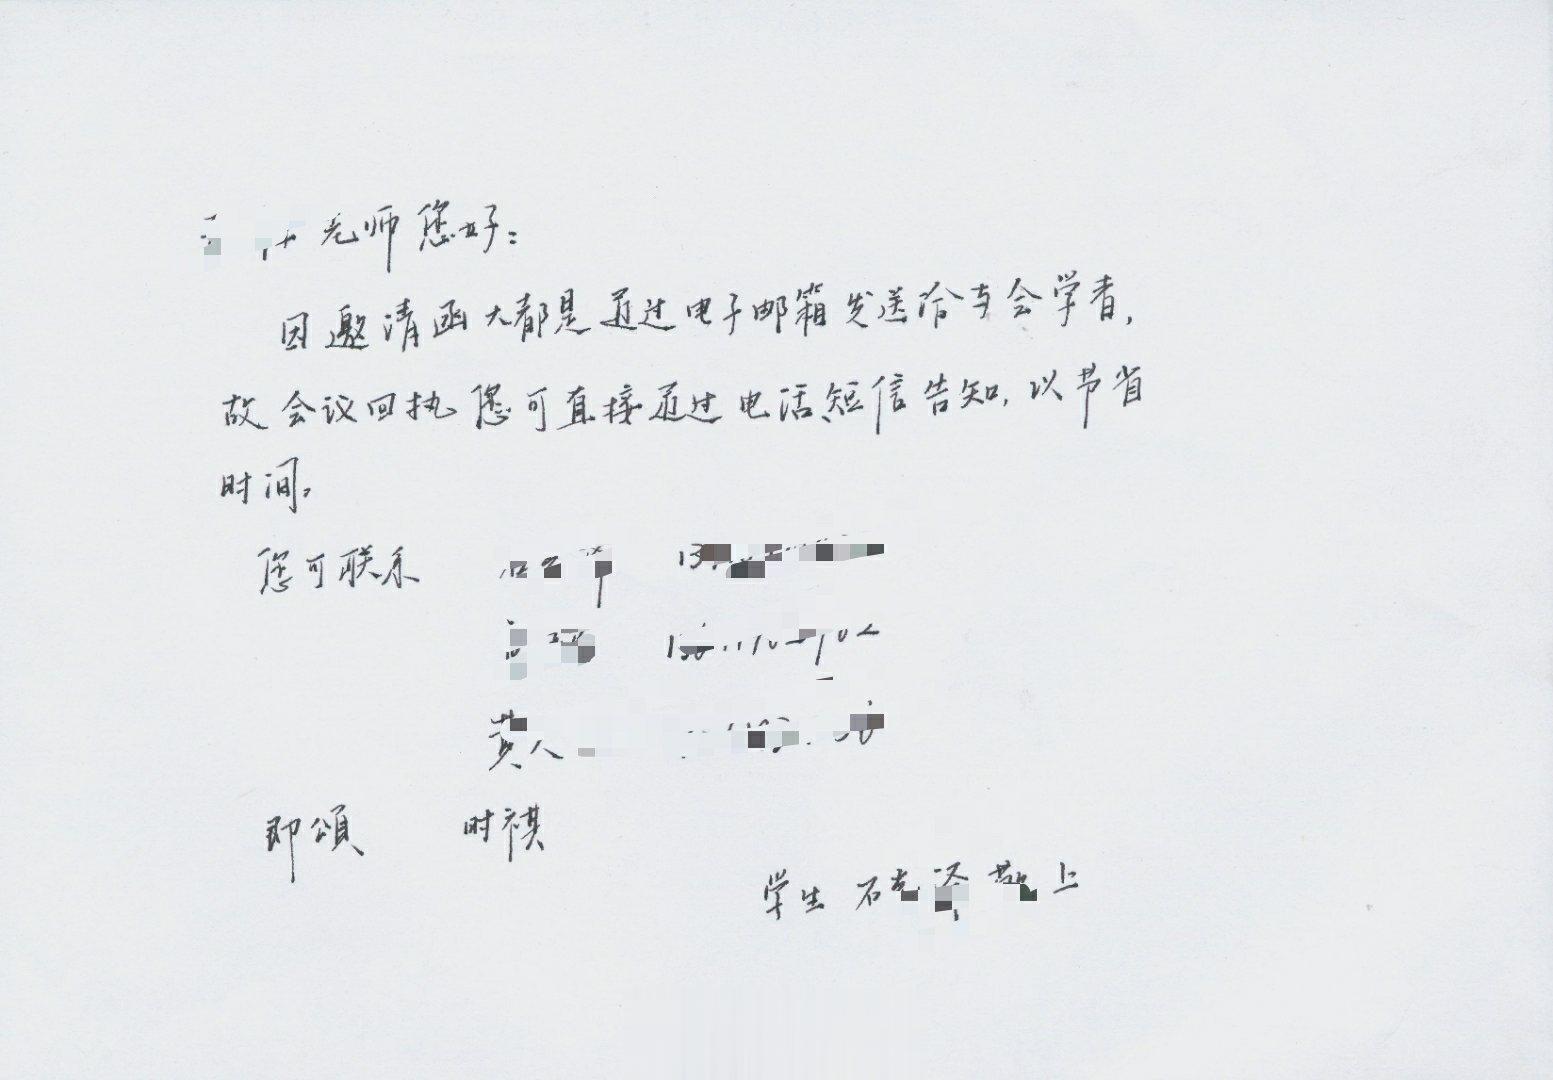 老师您好：
因邀请函大都是通过电子邮箱发送给与会学者，
故会议回执您可直接通过电话、短信告知，以节省
时间。
您可联系
黄人
即頌 时祺
学生 石 上